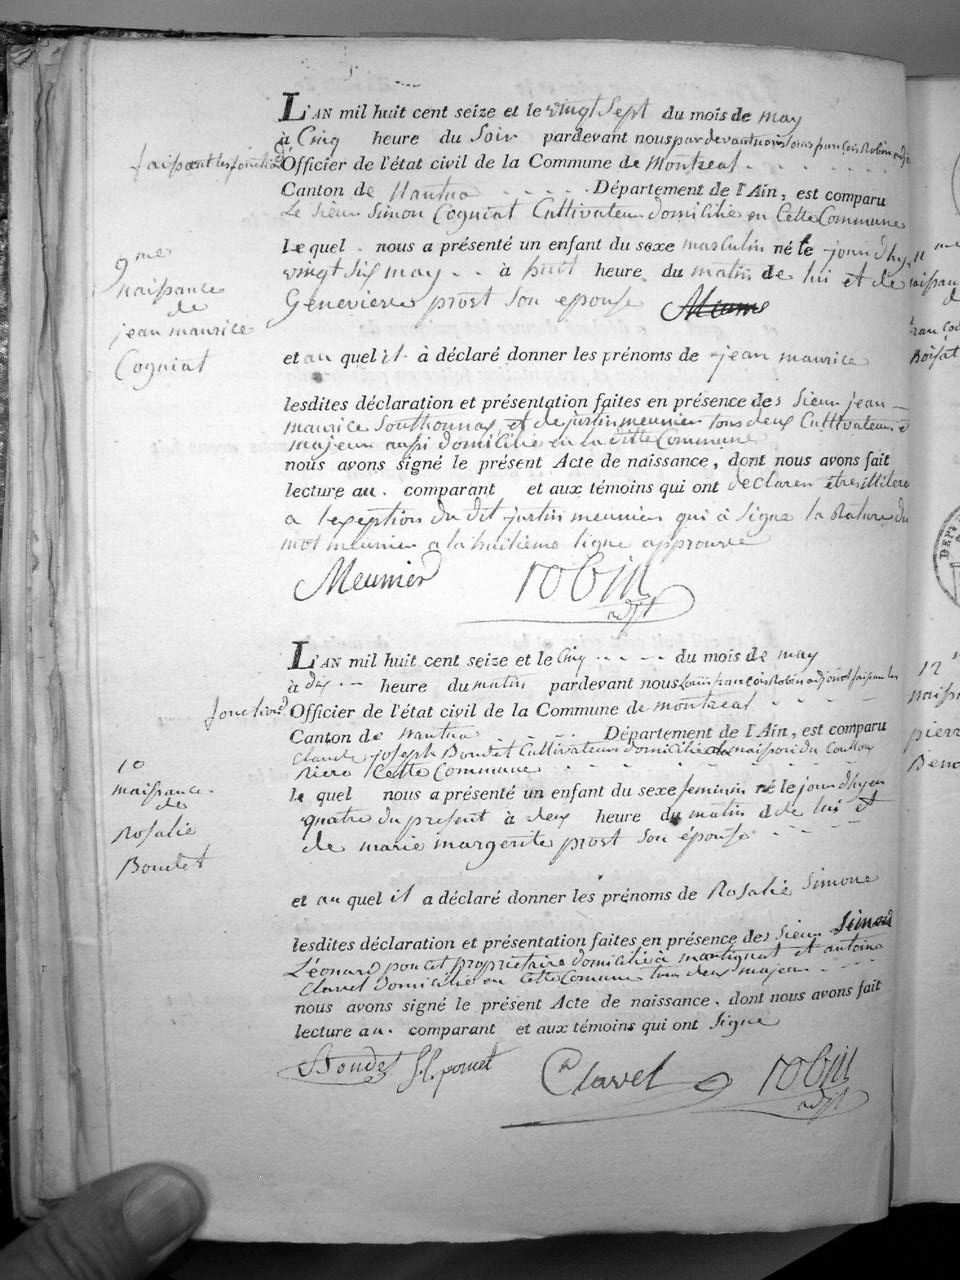 L'AN mil huit cent seize et le vingt Sept du mois de may
à Cinq heure du Soir pardevant nous par devant nous Louis françois Robin adjt
faissant les fonctions d'Officier de l'état civil de la Commune de Montreal
Canton de Nantua Département de l'Ain, est comparu
Le Sieur Simon Cogniat Cultivateur domicilié en Cette Commune
le quel nous a présenté un enfant du sexe masculin né le jourd'huy
vingt six may à huit heure du matin de lui et de
Genevieve prost Son epouse
9me
naissance
de
jean maurice
Cogniat
et au quel il à déclaré donner les prénoms de jean maurice
lesdites déclaration et présentation faites en présence des Sieur jean
maurice Southonnax et de justin meunier tous deux Cultivateurs et
majeur aussi domicilié en la ditte Commune
nous avons signé le présent Acte de naissance, dont nous avons fait
lecture au comparant et aux témoins qui ont declaren être illitere
a l'exeption du dit justin meunier qui à Signé la Rature du
mot meunier a la huitieme ligne approuvée
Meunier robin
adjt
L'AN mil huit cent seize et le Cinq du mois de may
à dix heure du matin pardevant nous Louis françois Robin adjoint faissant les
fonctions d'Officier de l'état civil de la Commune de Montreal
Canton de Nantua Département de l'Ain, est comparu
Claude joseph Boudet Cultivateur domicilié
Cette Commune
le quel nous a présenté un enfant du sexe feminin né le jour d'hyer
quatre du present à deux heure du matin de lui et
de marie margerite prost Son épouse
10
naissance
de
Rosalie
Boudet
et au quel il a déclaré donner les prénoms de Rosalie Simone
lesdites déclaration et présentation faites en présence des Sieur Simon
Léonard poncet propriétaire domicilié à martignat et antoine
Clavel domicilié en Cette Comune tous deux majeur
nous avons signé le présent Acte de naissance, dont nous avons fait
lecture au comparant et aux témoins qui ont Signé
Boudet S.L. poncet Clavel robin
adjt